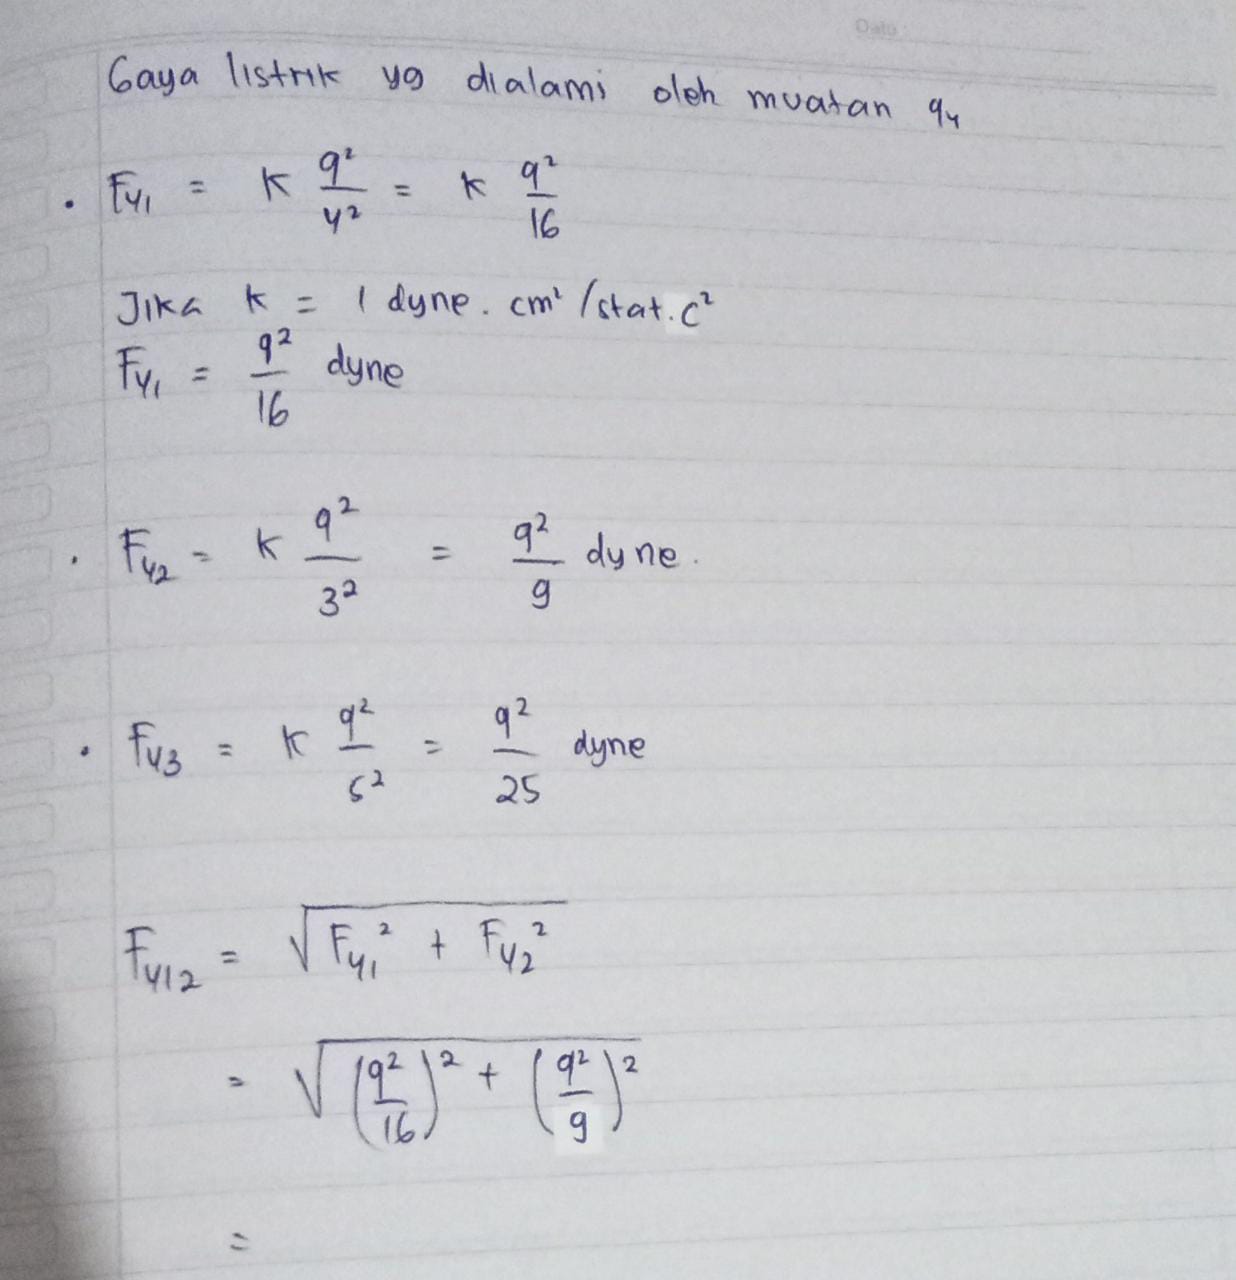 Date
Gaya listrik yg dialami oleh muatan q₄
• F₄₁ = k q²/4² = k q²/16
Jika k = 1 dyne. cm²/stat.C²
F₄₁ = q²/16 dyne
• F₄₂ = k q²/3² = q²/9 dyne.
• F₄₃ = k q²/5² = q²/25 dyne
F₄₁₂ = √(F₄₁² + F₄₂²)
= √((q²/16)² + (q²/9)²)
=